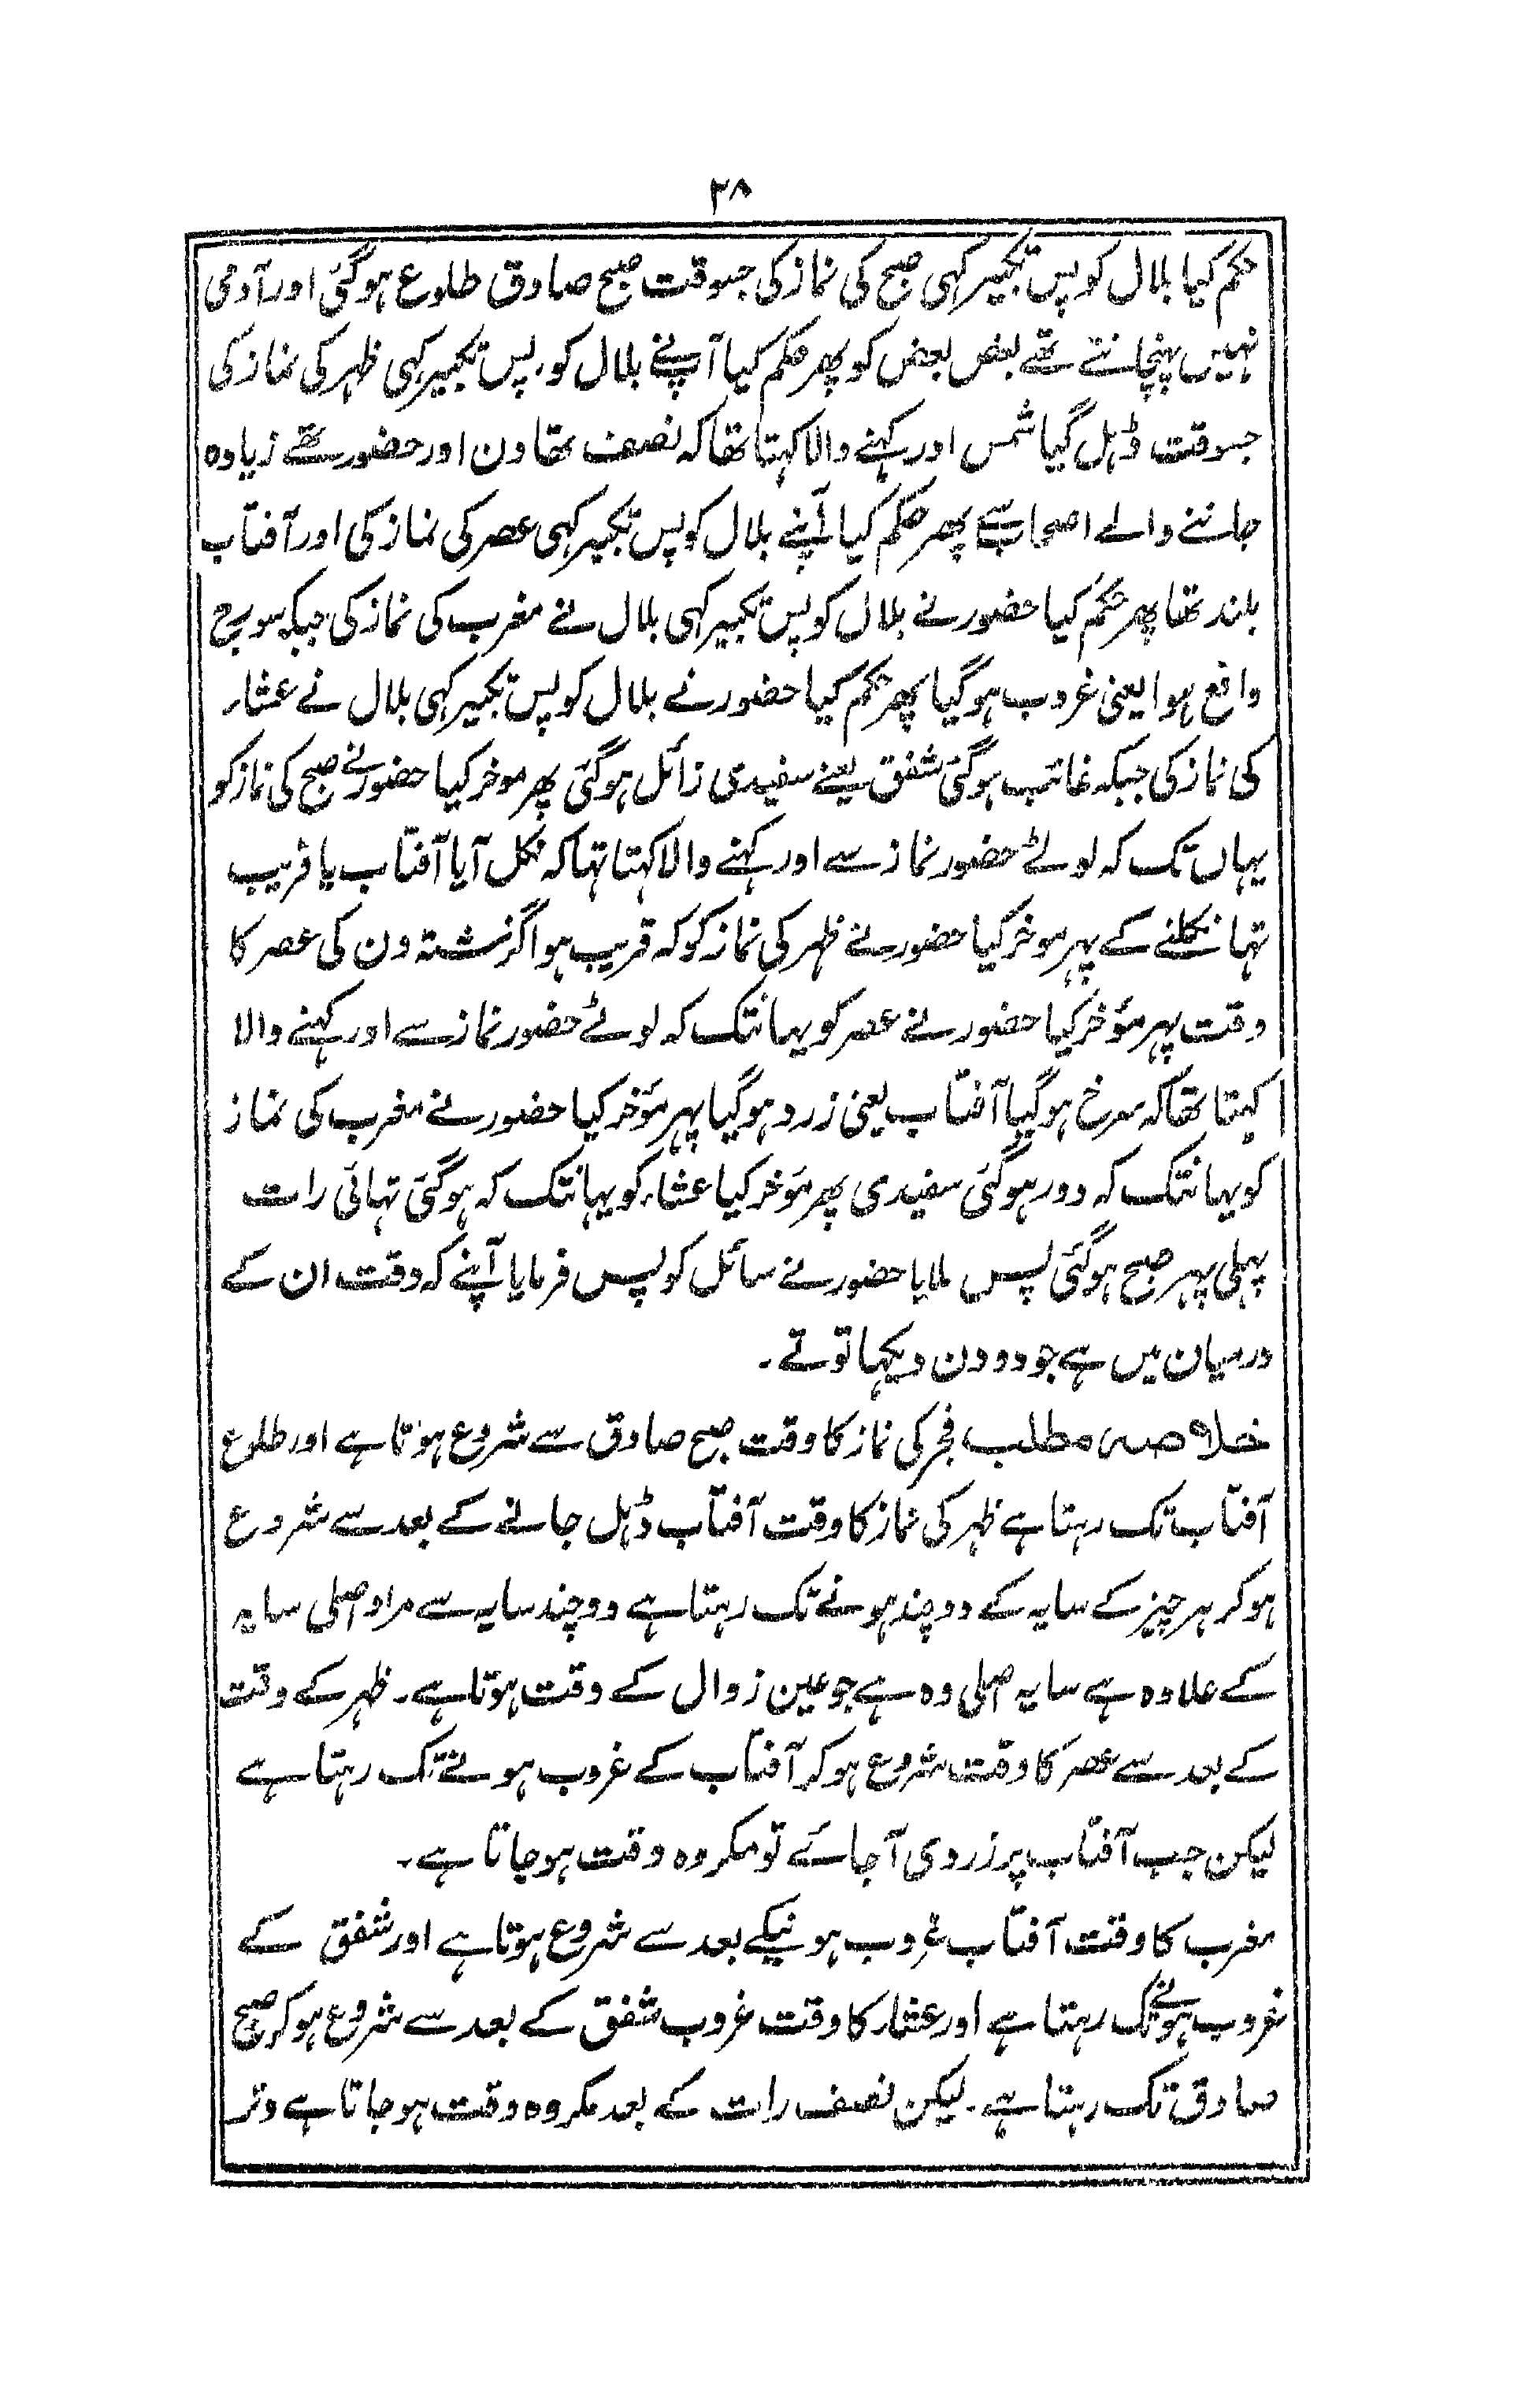 ۲۸
حکم کیا بلال کو پس تکبیر کہی صبح کی نماز کی جسوقت صبح صادق طلوع ہوگئی اور آدمی
نہیں پہنچانتے تھے بعض بعض کو پھر حکم کیا آپنے بلال کو، پس تکبیر کہی ظہر کی نماز کی
جسوقت ڈہل گیا شمس اور کہنے والا کہتا تھا کہ نصف تھا دن اور حضور تھے زیادہ
جاننے والے اصحاب سے پھر حکم کیا آپنے بلال کو پس تکبیر کہی عصر کی نماز کی اور آفتاب
بلند تھا پھر حکم کیا حضور نے بلال کو پس تکبیر کہی بلال نے مغرب کی نماز کی جبکہ سورج
واقع ہوا یعنی غروب ہوگیا پھر حکم کیا حضور نے بلال کو پس تکبیر کہی بلال نے عشاء
کی نماز کی جبکہ غائب ہوگئی شفق یعنے سفیدی زائل ہوگئی پھر موخر کیا حضور نے صبح کی نماز کو
یہاں تک کہ لوٹے حضور نماز سے اور کہنے والا کہتا تہا کہ نکل آیا آفتاب یا قریب
تہا نکلنے کے پہر موخر کیا حضور نے ظہر کی نماز کو کہ قریب ہوا گزشتہ دن کی عصر کا
وقت پہر مؤخر کیا حضور نے عصر کو یہانتک کہ لوٹے حضور نماز سے اور کہنے والا
کہتا تھا کہ سرخ ہوگیا آفتاب یعنی زرد ہوگیا پہر مؤخر کیا حضور نے مغرب کی نماز
کو یہانتک کہ دور ہوگئی سفیدی پھر مؤخر کیا عشاء کو یہانتک کہ ہوگئی تہائی رات
پہلی پہر صبح ہوگئی پس بلایا حضور نے سائل کو پس فرمایا آپنے کہ وقت ان کے
درمیان میں ہے جو دو دن دیکہا تو نے۔
خلاصہ مطلب فجر کی نماز کا وقت صبح صادق سے شروع ہوتا ہے اور طلوع
آفتاب تک رہتا ہے ظہر کی نماز کا وقت آفتاب ڈہل جانے کے بعد سے شروع
ہوکر ہر چیز کے سایہ کے دو چند ہونے تک رہتا ہے دو چند سایہ سے مراد اصلی سایہ
کے علاوہ ہے سایہ اصلی وہ ہے جو عین زوال کے وقت ہوتا ہے۔ ظہر کے وقت
کے بعد سے عصر کا وقت شروع ہوکر آفتاب کے غروب ہونے تک رہتا ہے
لیکن جب آفتاب پر زردی آجائے تو مکروہ وقت ہوجاتا ہے۔
مغرب کا وقت آفتاب غروب ہونیکے بعد سے شروع ہوتا ہے اور شفق کے
غروب ہونے تک رہتا ہے اور عشاء کا وقت غروب شفق کے بعد سے شروع ہوکر صبح
صادق تک رہتا ہے۔ لیکن نصف رات کے بعد مکروہ وقت ہوجاتا ہے وتر